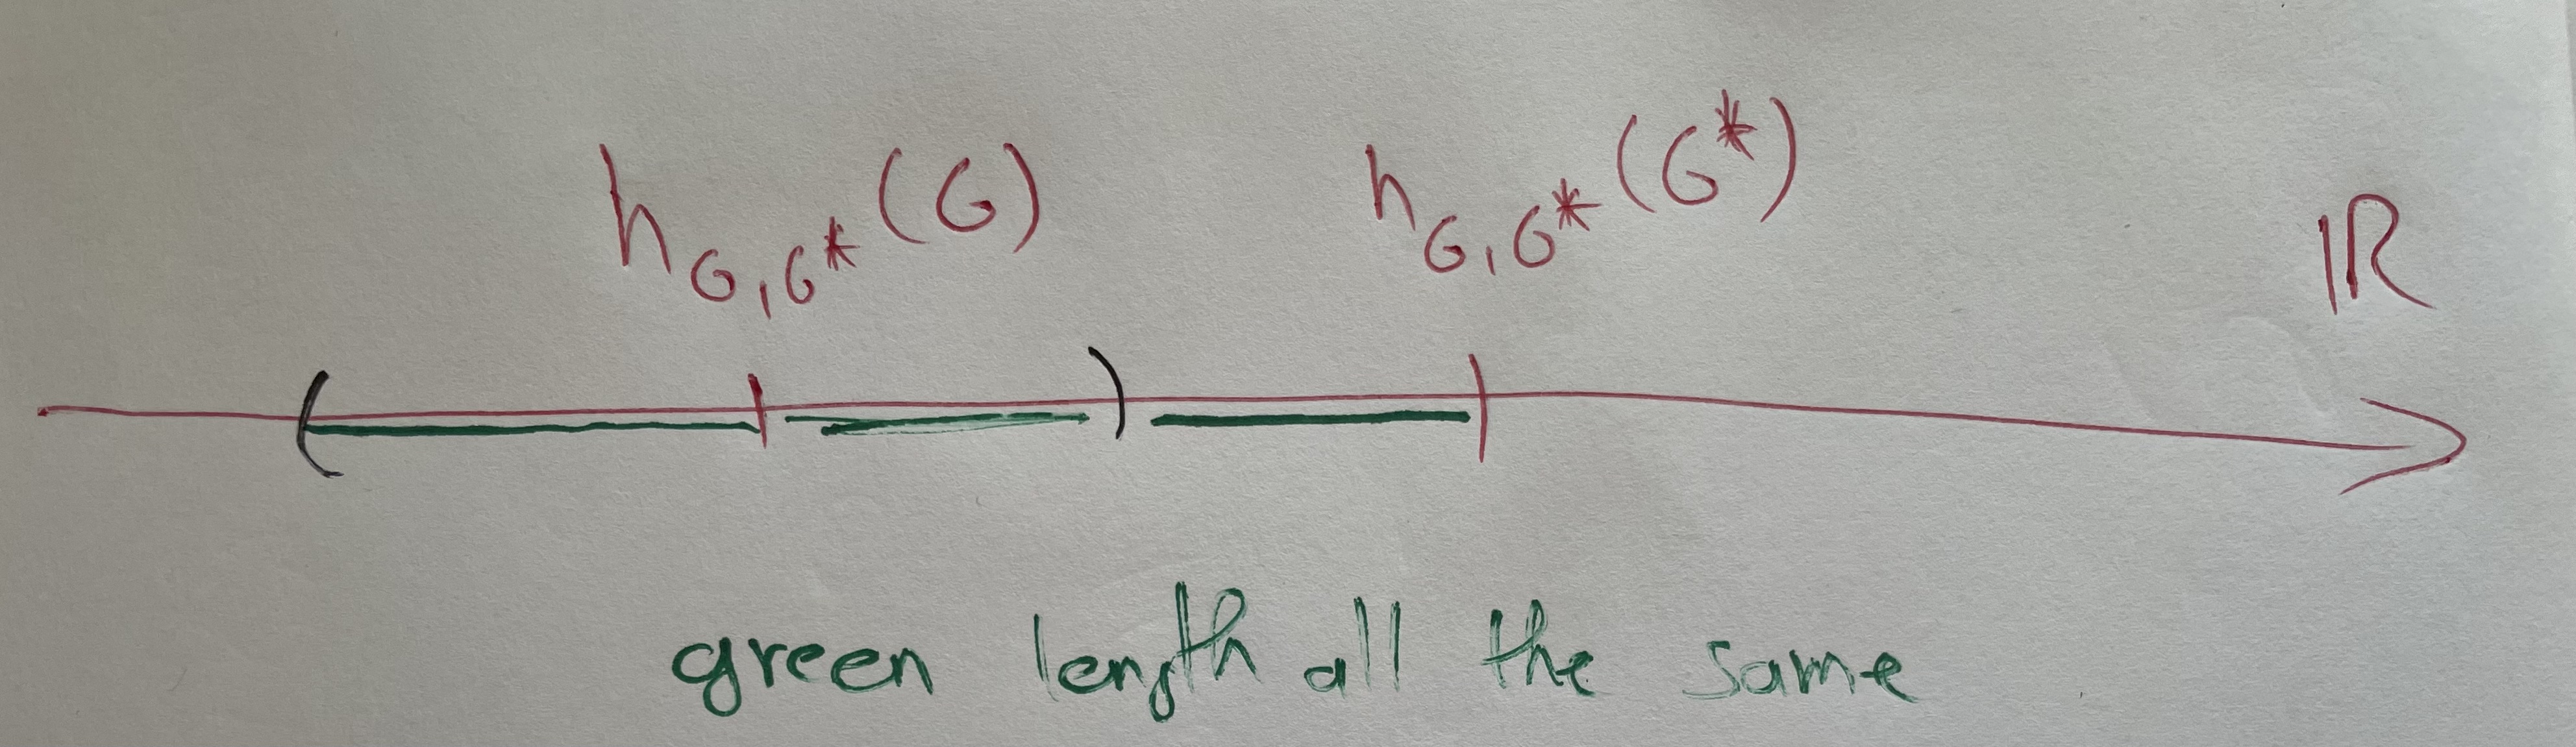 h_{G,G*}(G) h_{G,G*}(G*) ℝ
( )
green length all the same